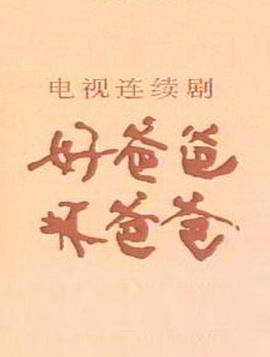 电视连续剧
好爸爸
坏爸爸